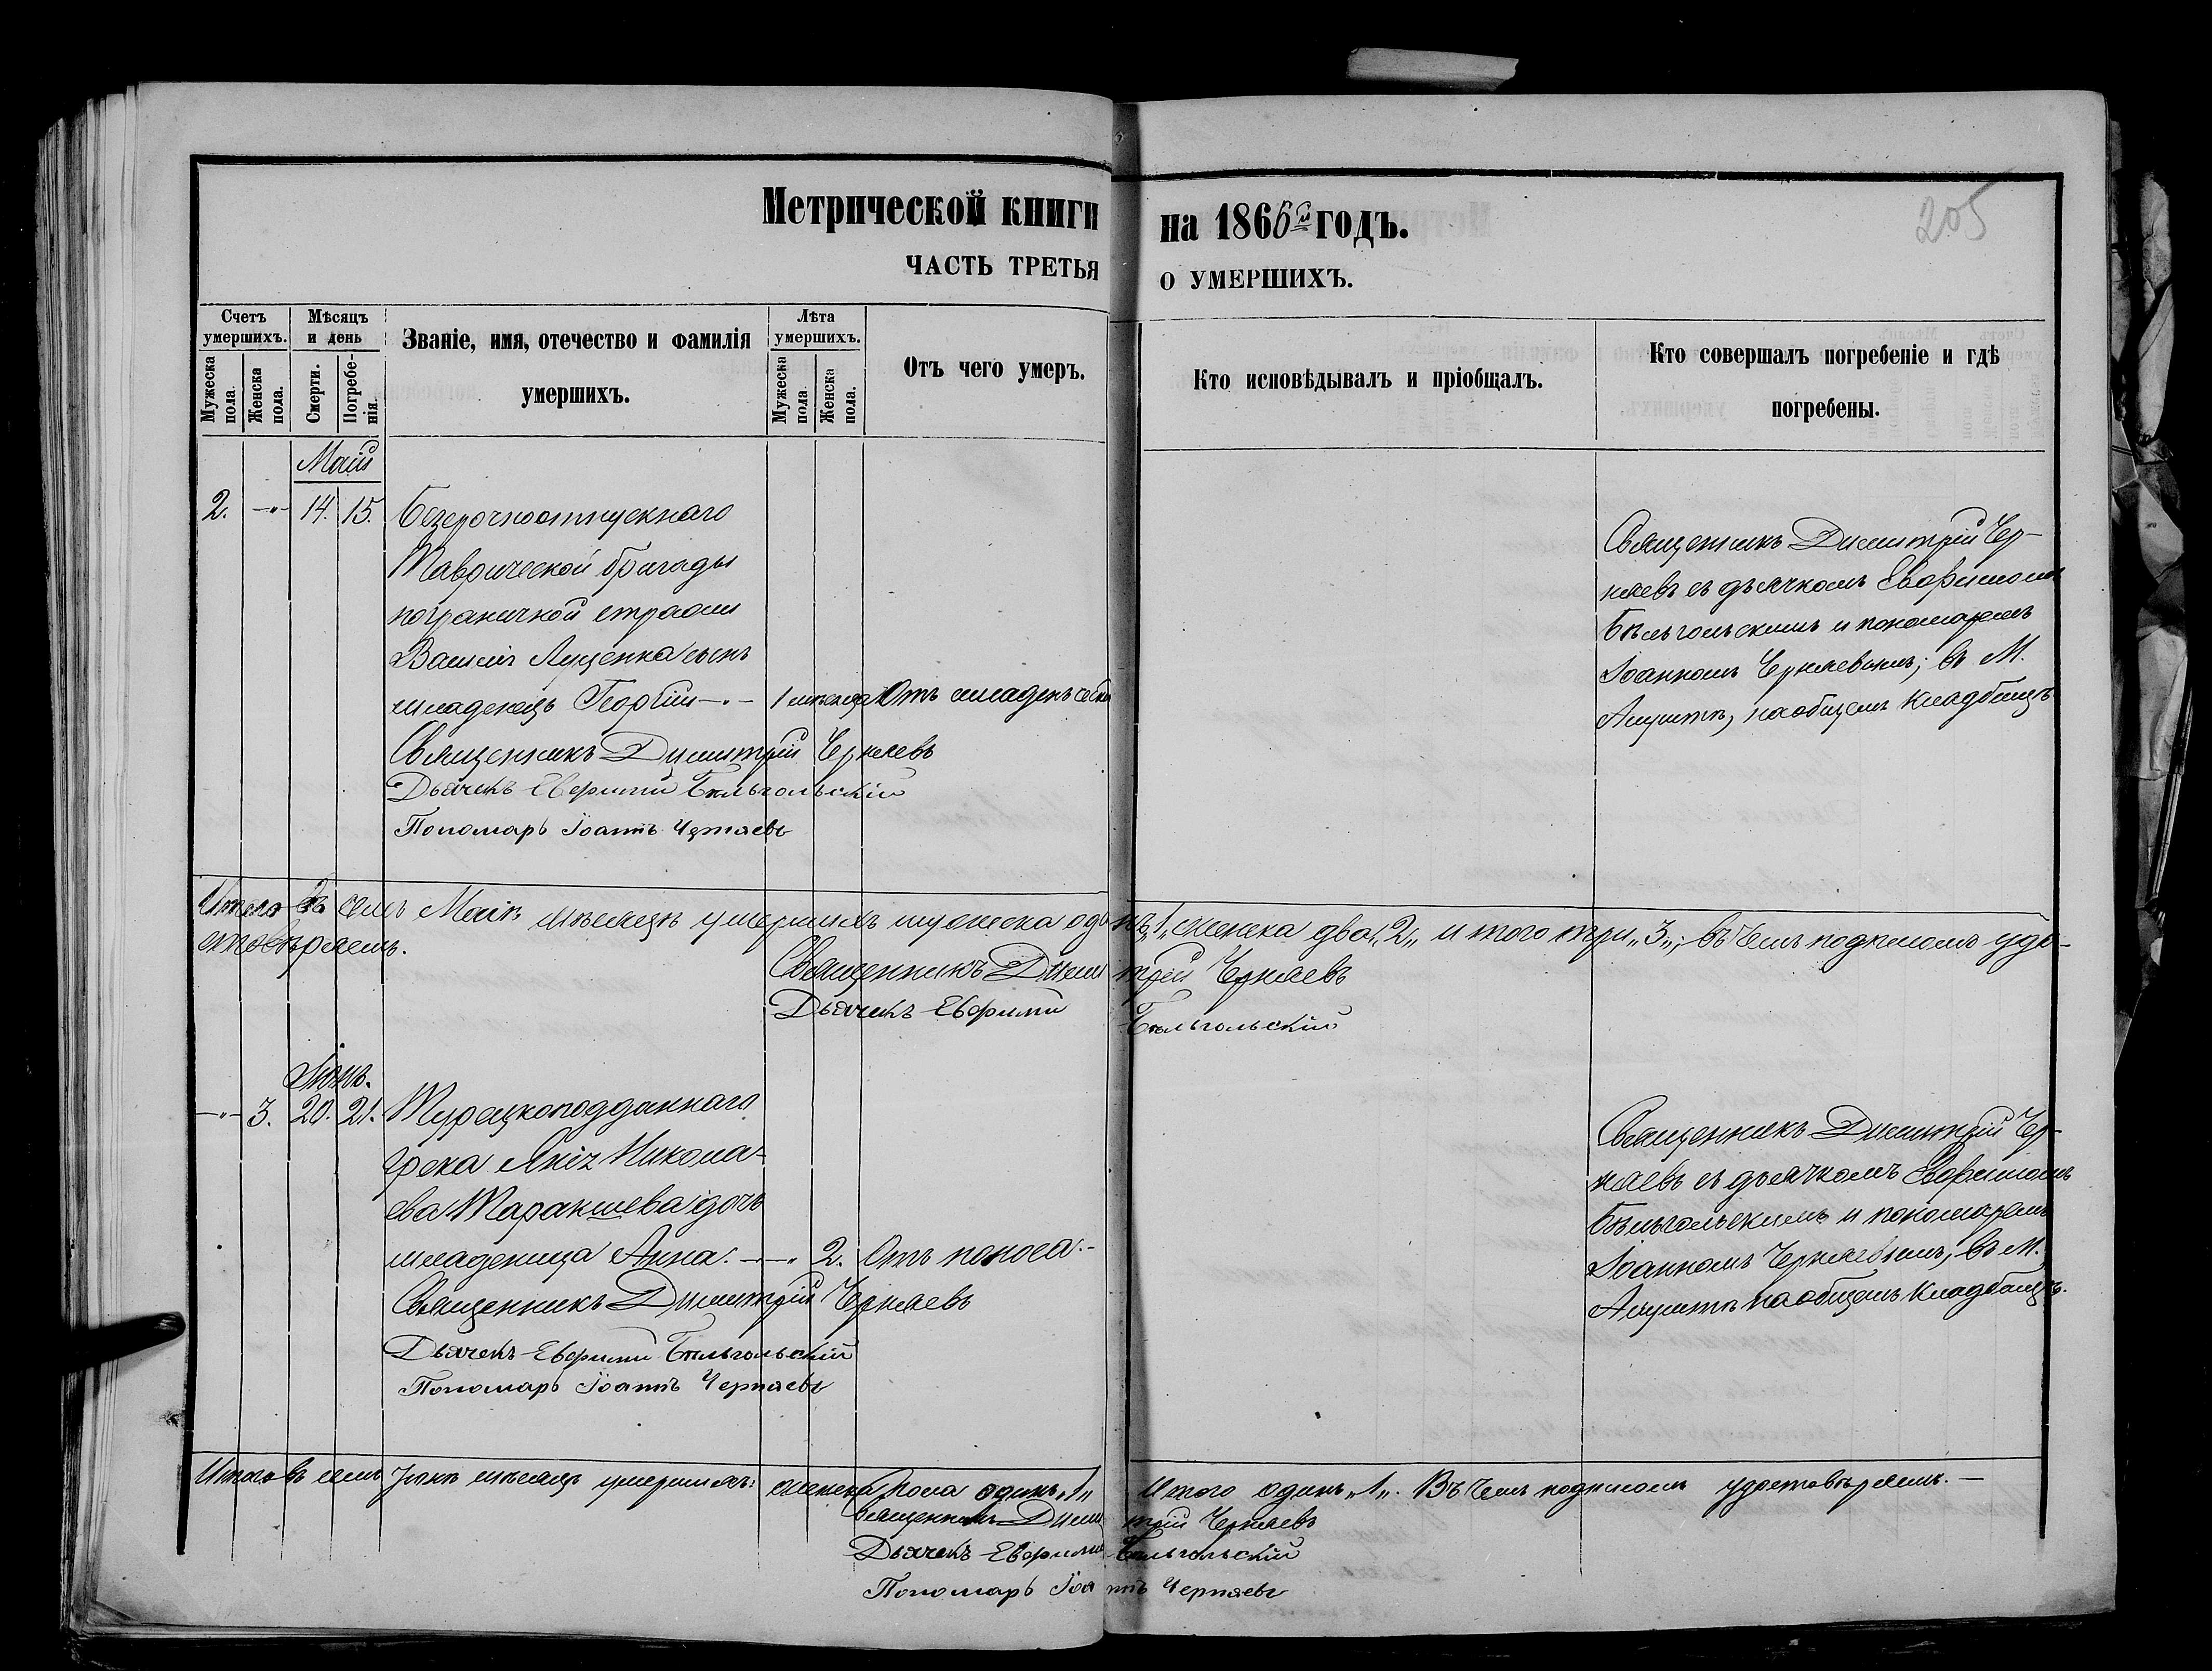 Метрической книги на 1866й годъ.
205
ЧАСТЬ ТРЕТЬЯ О УМЕРШИХЪ.
Счетъ умершихъ.
Мужеска пола.
Женска пола.
Мѣсяцъ и день
Смерти.
Погребенія.
Званіе, имя, отечество и фамилія
умершихъ.
Лѣта умершихъ.
Мужеска пола.
Женска пола.
Отъ чего умеръ.
Кто исповѣдывалъ и пріобщалъ.
Кто совершалъ погребеніе и гдѣ
погребены.
Маій
2. -„- 14. 15. Безсрочноотпускнаго
Таврической бригады
пограничной стражи
Василія Луценка сынъ
младенецъ Георгій -„- 1 мѣсяца Отъ младенческой
Священникъ Димитрій Черняевъ
Дьячекъ Евфимій Бѣльгольскій
Пономарь Іоаннъ Черняевъ
Священникъ Димитрій Чер-
няевъ съ дьячкомъ Евфиміемъ
Бѣльгольскимъ и пономаремъ
Іоанномъ Черняевымъ; въ М.
Алуштѣ, на общемъ кладбищѣ
Итого въ семъ Маіѣ мѣсяцѣ умершихъ мужеска одинъ „1„ женска два „2„ итого три „3„; въ чемъ подписомъ удо-
стовѣряемъ.
Священникъ Димитрій Черняевъ
Дьячекъ Евфимій Бѣльгольскій
Іюнь.
-„- 3. 20. 21. Турецкоподданнаго
грека Николა-
ева дочь
младеница Анна. -„- 2. Отъ поноса.-
Священникъ Димитрій Черняевъ
Дьячекъ Евфимій Бѣльгольскій
Пономарь Іоаннъ Черняевъ
Священникъ Димитрій Чер-
няевъ съ дьячкомъ Евфиміемъ
Бѣльгольскимъ и пономаремъ
Іоанномъ Черняевымъ, въ М.
Алуштѣ на общемъ кладбищѣ.
Итого въ семъ Іюнѣ мѣсяцѣ умершихъ: женска пола одинъ „1„ Итого одинъ „1„. Въ чемъ подписомъ удостовѣряемъ.-
Священникъ Димитрій Черняевъ
Дьячекъ Евфимій Бѣльгольскій
Пономарь Іоаннъ Черняевъ